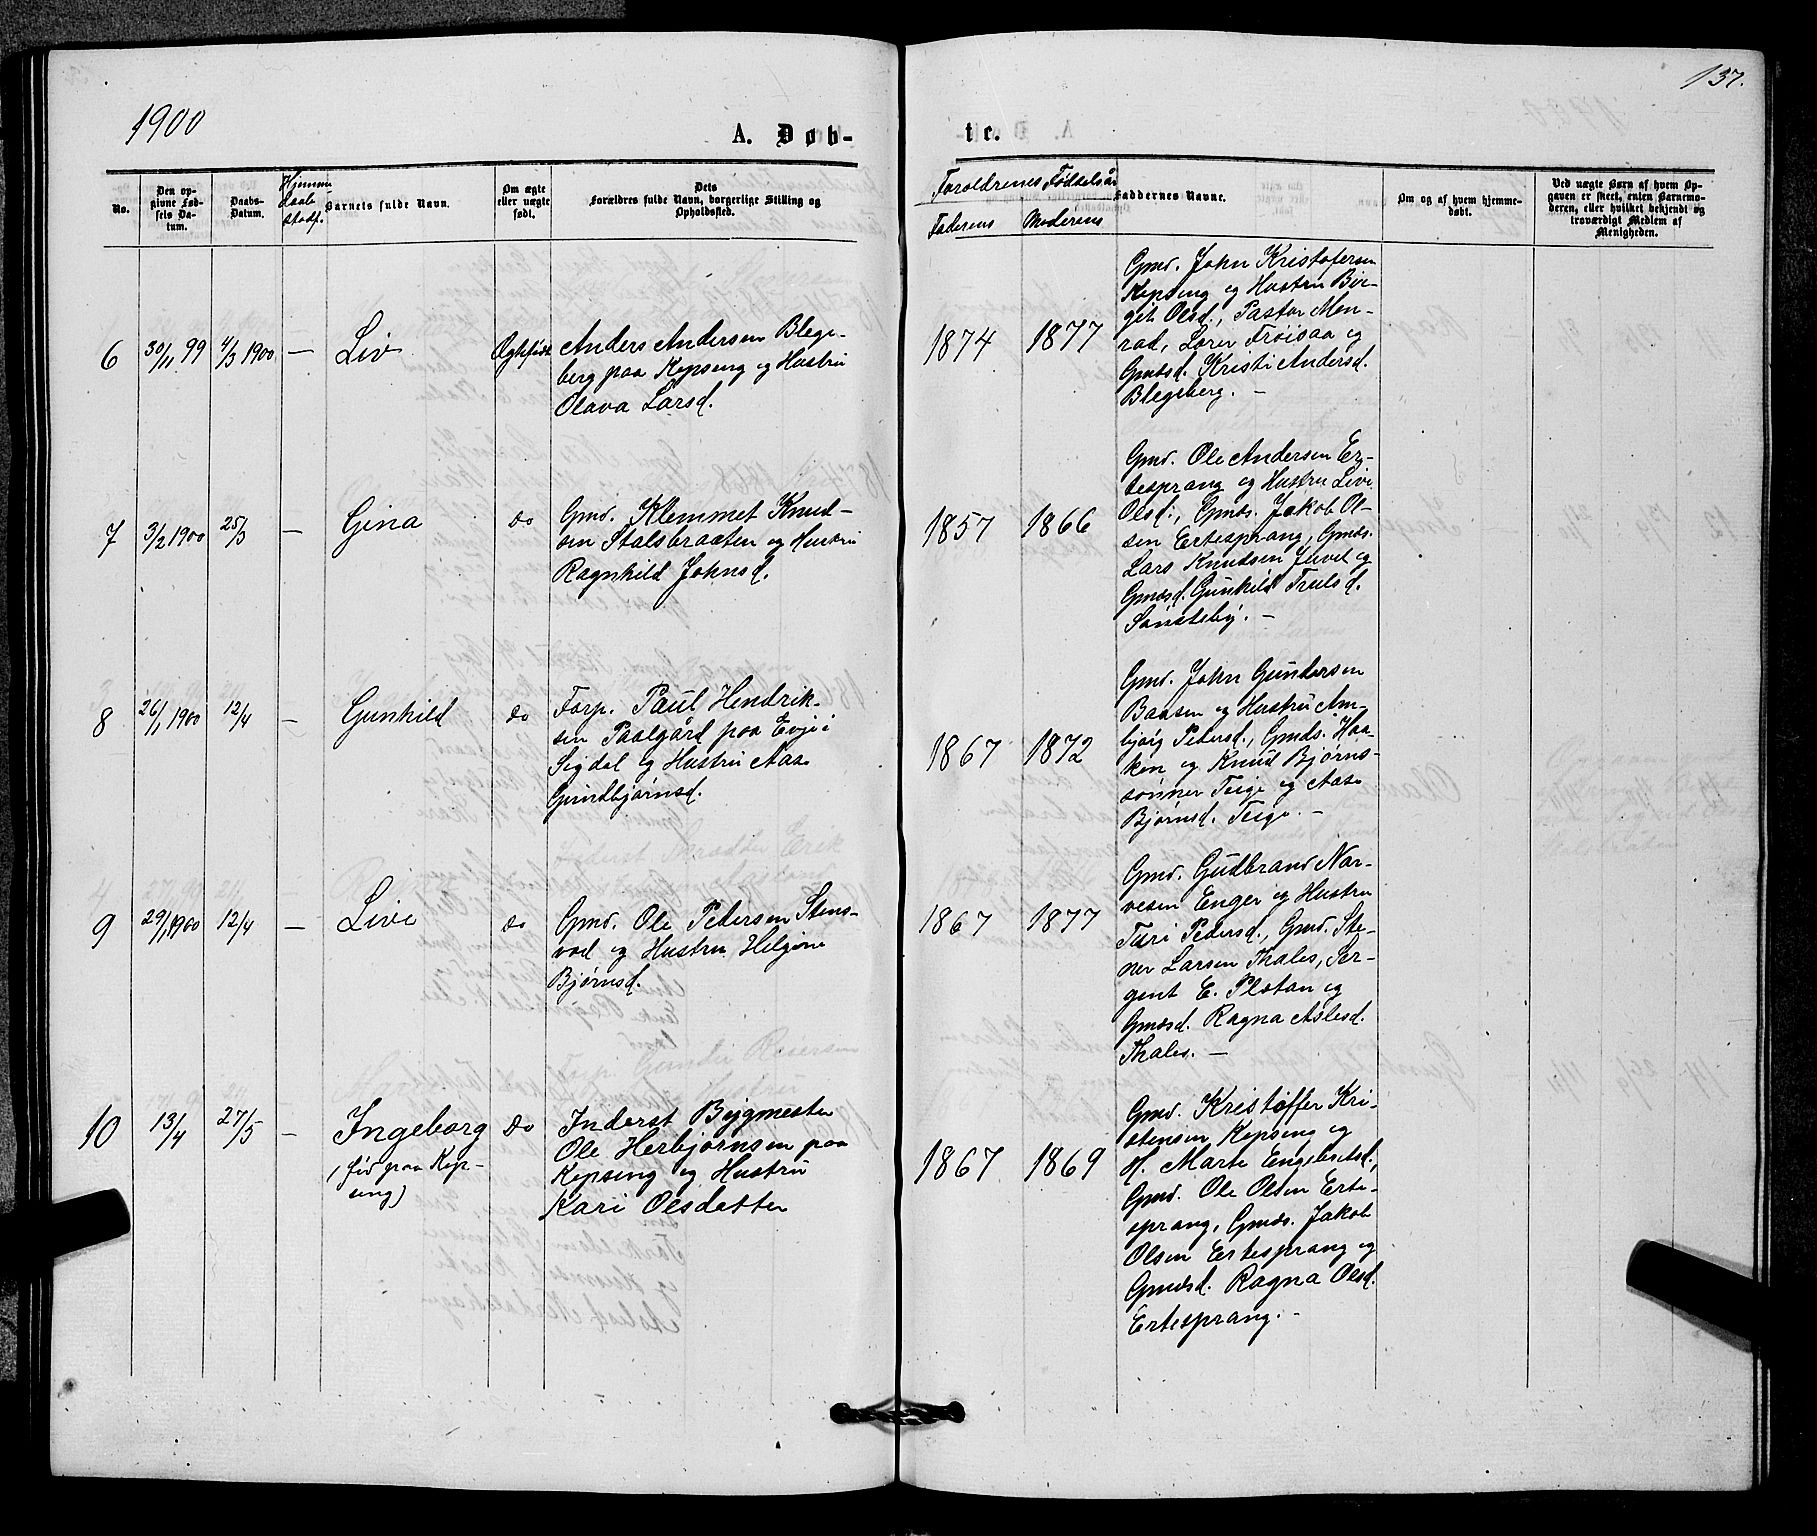 1900
137.
A. Døb-
te.
No.
Den op-
givne Fød-
sels Da-
tum.
Daabs-
Datum.
Hjemme
Daab
Stadf.
Barnets fulde Navn.
Om ægte
eller uægte
født.
Dets
Forældres fulde Navn, borgerlige Stilling og
Opholdssted.
Forældrenes Fødselsår
Faderens
Moderens
Faddernes Navne.
Om og af hvem hjemme-
døbt.
Ved uægte Børn af hvem Op-
gaven er skeet, enten Barnemo-
deren, eller hvilket bekjendt og
troværdigt Medlem af
Menigheden.
6
30/11 99
4/3 1900
—
Liv
Ægtefødt
Anders Andersen Blege-
berg paa Kopseng og Hustru
Olava Larsd.
1874
1877
Gmd. John Kristofersen
Kopseng og Hustru Bir-
git Olsd., Pastor Men-
rad, Lærer Frøisaa og
Gmdsd. Kristi Andersd.
Blegeberg. —
7
3/2 1900
25/3
—
Gina
do
Gmd. Klemmet Knud-
sen Stalsbraaten og Hustru
Ragnhild Johnsd.
1857
1866
Gmd. Ole Andersen Er-
tesprang og Hustru Livi
Olsd., Gmds. Jakob Ol-
sen Ertesprang, Gmds.
Lars Knudsen Juvet og
Gmdsd. Gunhild Truls d.
Sønsteby. —
8
26/1 1900
12/4
—
Gunhild
do
Forp. Paul Hendrik-
sen Paalgård paa Evju i
Sigdal og Hustru Aase
Gundbjørnsd.
1867
1872
Gmd. John Gundersen
Baasen og Hustru Am-
bjørg Petersd., Gmds. Haa-
ken og Knud Bjørns-
sønner Teige og Aase
Bjørnsd. Teige. —
9
29/1 1900
12/4
—
Live
do
Gmd. Ole Petersen Stens-
vod og Hustru Helgine
Bjørnsd.
1867
1877
Gmd. Gudbrand Nar-
vesen Enger og Hustru
Turi Petersd., Gmd. Ste-
ner Larsen Thales, Ser-
gent E. Platan og
Gmdsd. Ragna Aslesd.
Thales. —
10
13/4
27/5
—
Ingeborg
(fød paa Kop-
seng)
do
Inderst Bygmester
Ole Herbjørnsen paa
Kopseng og Hustru
Kari Olsdatter
1867
1869
Gmd. Kristoffer Kri-
stensen Kopseng og
H. Marte Engebretsd.,
Gmd. Ole Olsen Erte-
sprang, Gmds. Jakob
Olsen Ertesprang og
Gmdsd. Ragna Olsd.
Ertesprang. —